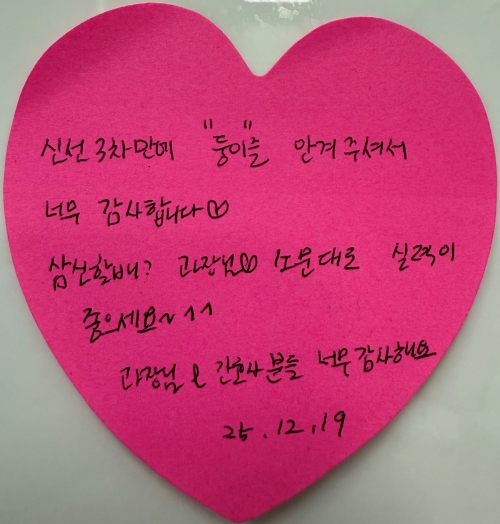 신선 3차만에 "둥이"를 안겨 주셔서
너무 감사합니다♡
삼신할배? 과장님♡ 소문대로 실력이
좋으세요~ ^^
과장님 & 간호사분들 너무감사해요
25.12.19